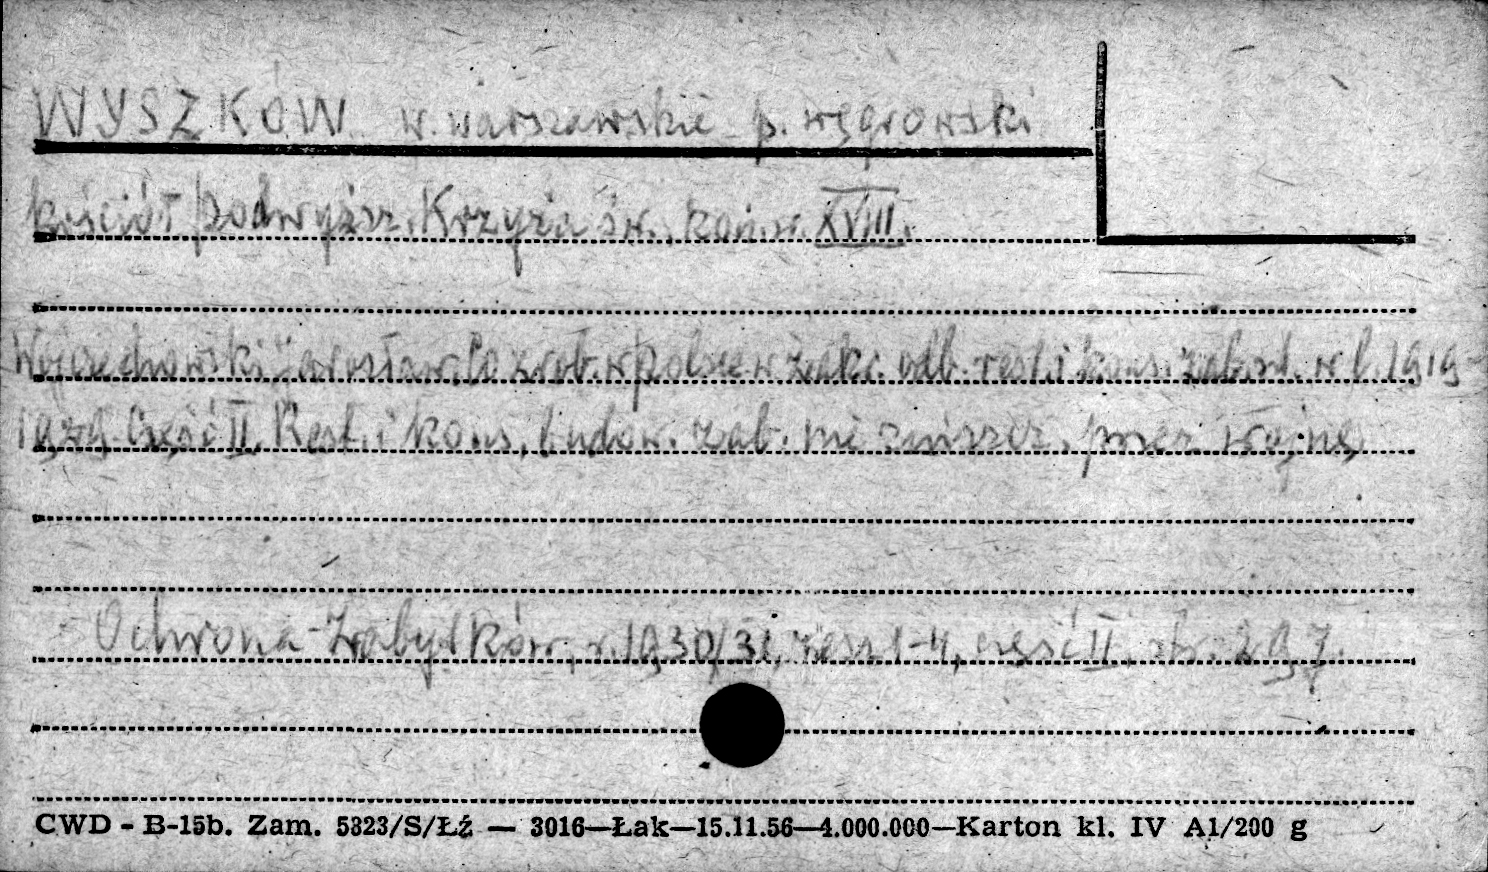 WYSZKÓW w. warszawskie p. węgrowski
kościół podwyższ. Krzyża św., kon. w. XVIII.
Wojciechowski Jarosław. Co zrob. w Polsce w zakr. odb. rest. i kons. zab. szt. w l. 1919-
1929. Część II. Rest. i kons. budow. zab. nie zniszcz. przez wojnę
Ochrona Zabytków, r. 1930/31, zesz. 1-4, część II, str. 297.
CWD - B-15b. Zam. 5323/S/Łź — 3016—Łak—15.11.56—4.000.000—Karton kl. IV A1/200 g